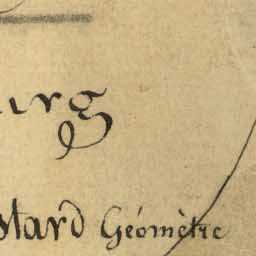 urg
stard Géomètre